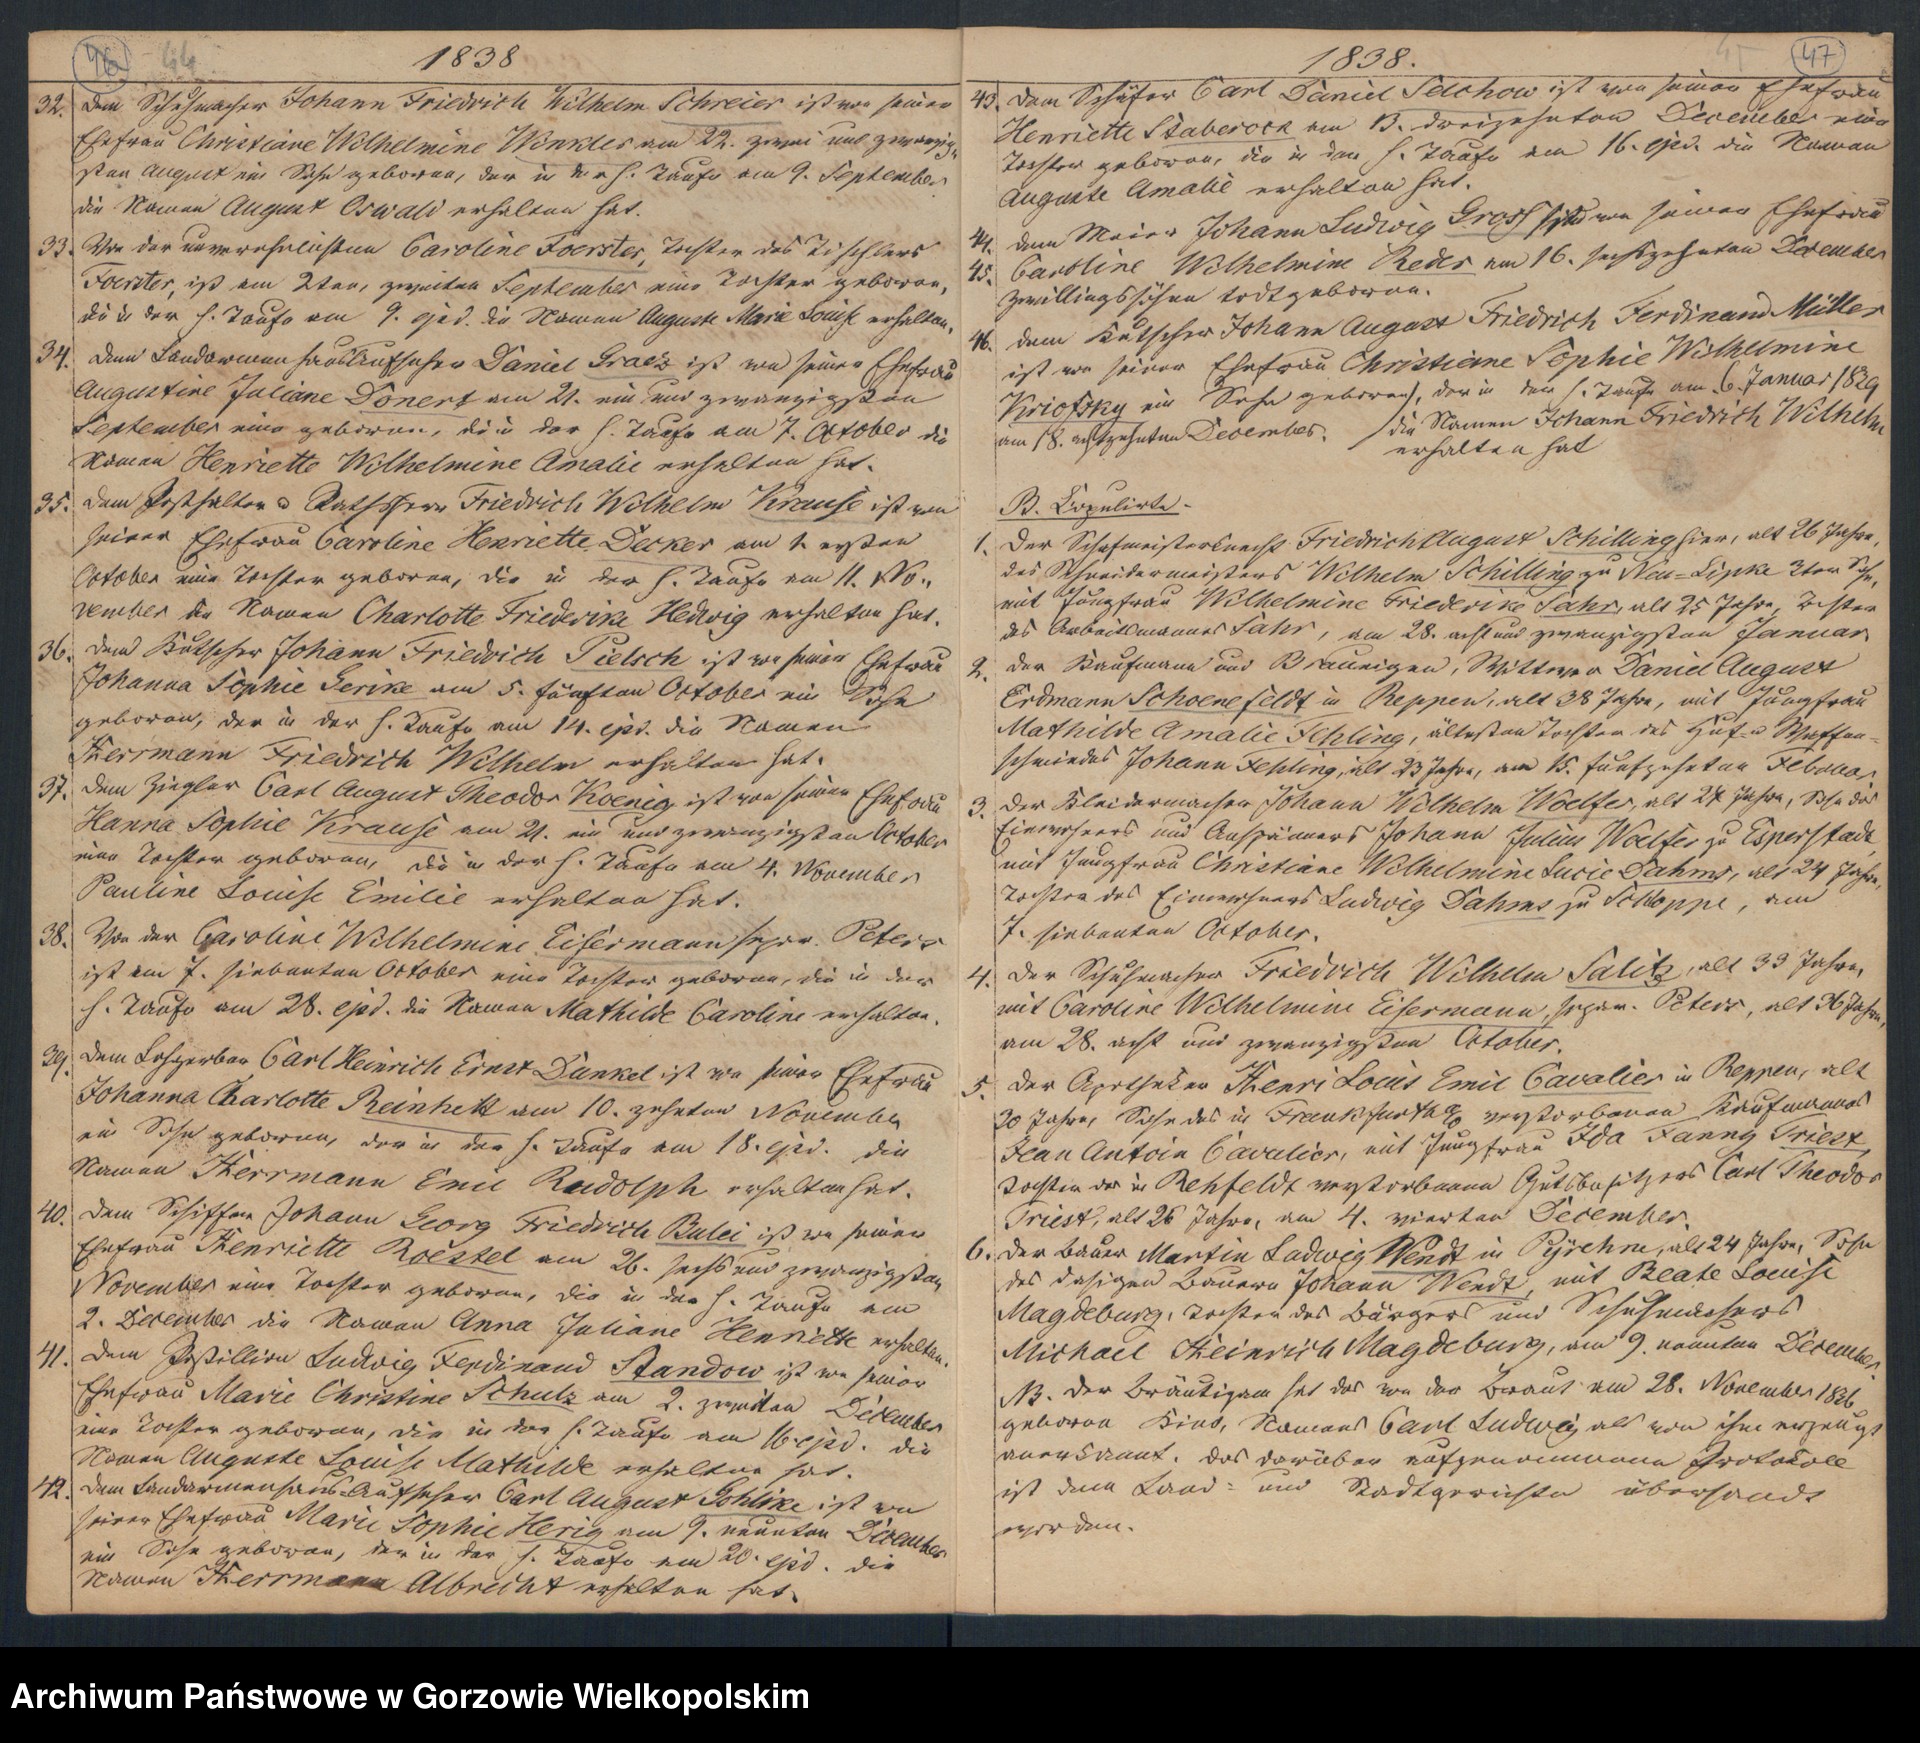 46 44
1838
32. Dem Schuhmacher Johann Friedrich Wilhelm Schreier ist von seiner
Ehefrau Christiane Wilhelmine Winkler am 22. zwei und zwanzig-
sten August ein Sohn geboren, der in der h. Taufe am 9. September
die Namen August Oswald erhalten hat.
33. Von der unverehelichten Caroline Foerster, Tochter des Tischlers
Foerster, ist am 2ten, zweiten September eine Tochter geboren,
die in der h. Taufe am 9. ejsd. die Namen Auguste Marie Louise erhalten.
34. Dem Landarmenhausaufseher Daniel Graez ist von seiner Ehefrau
Augustine Juliane Donert am 21. ein und zwanzigsten
September eine geboren, die in der h. Taufe am 7. October die
Namen Henriette Wilhelmine Amalie erhalten hat.
35. Dem Posthalter u Rathsherrn Friedrich Wilhelm Krause ist von
seiner Ehefrau Caroline Henriette Decker am 1. ersten
October eine Tochter geboren, die in der h. Taufe am 11. No-
vember die Namen Charlotte Friederike Hedwig erhalten hat.
36. Dem Kutscher Johann Friedrich Pietsch ist von seiner Ehefrau
Johanna Sophie Gerike am 5. fünften October ein Sohn
geboren, der in der h. Taufe am 14. ejsd. die Namen
Herrmann Friedrich Wilhelm erhalten hat.
37. Dem Ziegler Carl August Theodor Koenig ist von seiner Ehefrau
Hanna Sophie Krause am 21. ein und zwanzigsten October
eine Tochter geboren, die in der h. Taufe am 4. November
Pauline Louise Emilie erhalten hat.
38. Von der Caroline Wilhelmine Eisermann separ. Peters
ist am 7. siebenten October eine Tochter geboren, die in der
h. Taufe am 28. ejsd. die Namen Mathilde Caroline erhalten.
39. Dem Lohgerber Carl Heinrich Ernst Dunkel ist von seiner Ehefrau
Johanna Charlotte Reinhelt am 10. zehnten November
ein Sohn geboren, der in der h. Taufe am 18. ejsd. die
Namen Herrmann Emil Rudolph erhalten hat.
40. Dem Schiffer Johann Georg Friedrich Bulei ist von seiner
Ehefrau Henriette Roestel am 26. sechs und zwanzigsten
November eine Tochter geboren, die in der h. Taufe am
2. December die Namen Anna Juliane Henriette erhalten.
41. Dem Postillion Ludwig Ferdinand Standow ist von seiner
Ehefrau Marie Christine Schulz am 2. zweiten December
eine Tochter geboren, die in der h. Taufe am 16. ejsd. die
Namen Auguste Louise Mathilde erhalten hat.
42. Dem Landarmenhaus-Aufseher Carl August Gohlike ist von
seiner Ehefrau Marie Sophie Herig am 9. neunten December
ein Sohn geboren, der in der h. Taufe am 20. ejsd. die
Namen Herrmann Albrecht erhalten hat.
45 47
1838.
43. Dem Schäfer Carl Daniel Selchow ist von seiner Ehefrau
Henriette Staberock am 13. dreizehnten December eine
Tochter geboren, die in der h. Taufe am 16. ejsd. die Namen
Auguste Amalie erhalten hat.
44. Dem Meier Johann Ludwig Gross sind von seiner Ehefrau
45. Caroline Wilhelmine Reder am 16. sechszehnten December
Zwillingssöhne todtgeboren.
46. Dem Kutscher Johann August Friedrich Ferdinand Müller
ist von seiner Ehefrau Christiane Sophie Wilhelmine
Kriofsky ein Sohn geboren, der in der h. Taufe am 6. Januar 1839
am 18. achtzehnten December. die Namen Johann Friedrich Wilhelm
erhalten hat
B. Copulirte.
1. Der Schafmeisterknecht Friedrich August Schilling hier, alt 26 Jahre,
des Schneidermeisters Wilhelm Schilling zu Neu-Lipke 3ter Sohn,
mit Jungfrau Wilhelmine Friederike Sahr, alt 25 Jahre, Tochter
des Arbeitsmannes Sahr, am 28. acht und zwanzigsten Januar.
2. Der Kaufmann und Braueigen, Wittwer Daniel August
Erdmann Schoenefeldt in Reppen, alt 38 Jahre, mit Jungfrau
Mathilde Amalie Fehling, ältesten Tochter des Huf- u Waffen-
schmiedes Johann Fehling, alt 23 Jahre, am 15. fünfzehnten Februar.
3. Der Kleidermacher Johann Wilhelm Woelfer, alt 27 Jahre, Sohn des
Einwohners und Anspänners Johann Julius Woelfer zu Esperstadt,
mit Jungfrau Christiane Wilhelmine Lucie Dahms, alt 24 Jahre,
Tochter des Einwohners Ludwig Dahms zu Schloppe, am
7. siebenten October.
4. Der Schuhmacher Friedrich Wilhelm Salitz, alt 33 Jahre,
mit Caroline Wilhelmine Eisermann, separ. Peters, alt 36 Jahre,
am 28. acht und zwanzigsten October.
5. Der Apotheker Henri Louis Emil Cavalier in Reppen, alt
30 Jahre, Sohn des in Frankfurth a/O verstorbenen Kaufmannes
Jean Antoin Cavalier, mit Jungfrau Ida Fanny Triest,
Tochter des in Rehfeldt verstorbenen Gutsbesitzers Carl Theodor
Triest, alt 26 Jahre, am 4. vierten December.
6. Der Bauer Martin Ludwig Wendt in Pyrehne, alt 24 Jahre, Sohn
des dasigen Bauern Johann Wendt, mit Beate Louise
Magdeburg, Tochter des Bürgers und Schuhmachers
Michael Heinrich Magdeburg, am 9. neunten December
NB. Der Bräutigam hat das von der Braut am 28. November 1836
geboren Kind, Namens Carl Ludwig als von ihm erzeugt
anerkannt. Das darüber aufgenommene Protokoll
ist dem Land- und Stadtgerichte übersandt
worden.
Archiwum Państwowe w Gorzowie Wielkopolskim